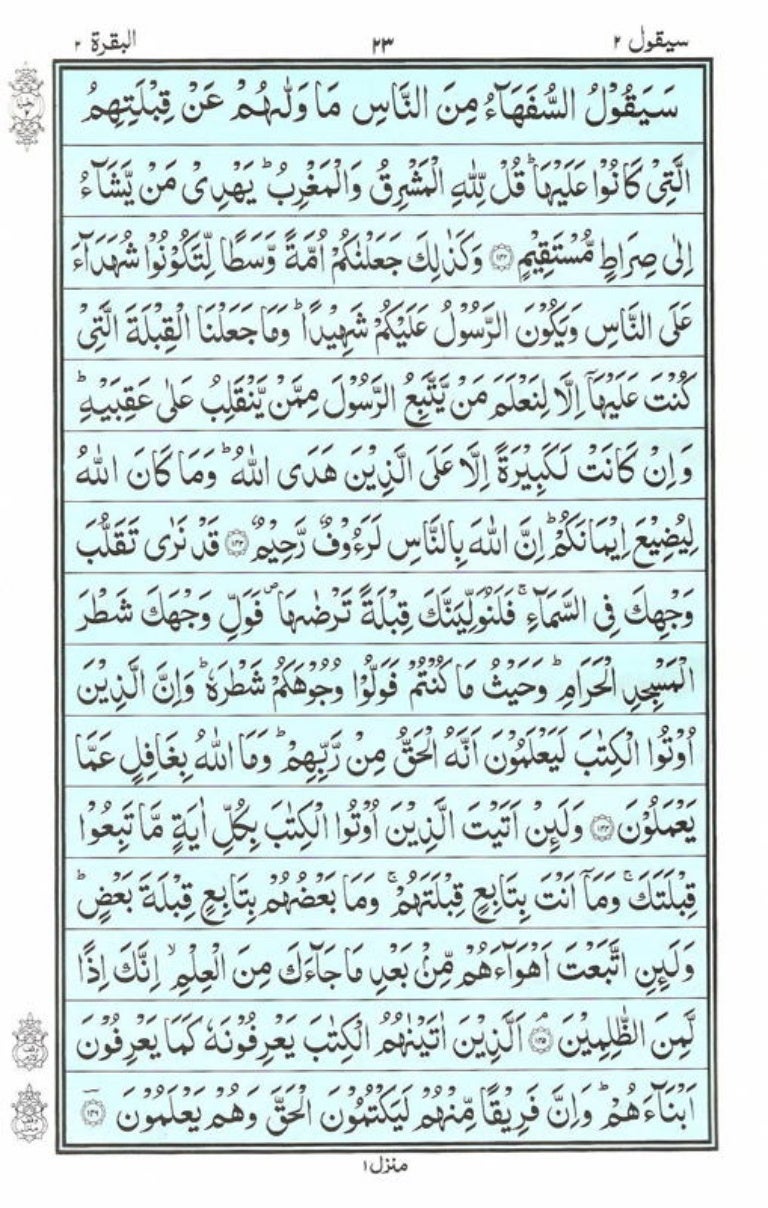 سيقول ٢ ٢٣ البقرة ٢
سَيَقُوْلُ السُّفَهَآءُ مِنَ النَّاسِ مَا وَلّٰىهُمْ عَنْ قِبْلَتِهِمُ
الَّتِيْ كَانُوْا عَلَيْهَا ؕ قُلْ لِّلّٰهِ الْمَشْرِقُ وَالْمَغْرِبُ ؕ يَهْدِىْ مَنْ يَّشَآءُ
اِلٰى صِرَاطٍ مُّسْتَقِيْمٍ ۝۱۴۲ وَكَذٰلِكَ جَعَلْنٰكُمْ اُمَّةً وَّسَطًا لِّتَكُوْنُوْا شُهَدَآءَ
عَلَى النَّاسِ وَيَكُوْنَ الرَّسُوْلُ عَلَيْكُمْ شَهِيْدًا ؕ وَمَا جَعَلْنَا الْقِبْلَةَ الَّتِيْ
كُنْتَ عَلَيْهَاۤ اِلَّا لِنَعْلَمَ مَنْ يَّتَّبِعُ الرَّسُوْلَ مِمَّنْ يَّنْقَلِبُ عَلٰى عَقِبَيْهِ ؕ
وَاِنْ كَانَتْ لَكَبِيْرَةً اِلَّا عَلَى الَّذِيْنَ هَدَى اللّٰهُ ؕ وَمَا كَانَ اللّٰهُ
لِيُضِيْعَ اِيْمَانَكُمْ ؕ اِنَّ اللّٰهَ بِالنَّاسِ لَرَءُوْفٌ رَّحِيْمٌ ۝۱۴۳ قَدْ نَرٰى تَقَلُّبَ
وَجْهِكَ فِى السَّمَآءِ ۚ فَلَنُوَلِّيَنَّكَ قِبْلَةً تَرْضٰىهَا ۪ فَوَلِّ وَجْهَكَ شَطْرَ
الْمَسْجِدِ الْحَرَامِ ؕ وَحَيْثُ مَا كُنْتُمْ فَوَلُّوْا وُجُوْهَكُمْ شَطْرَهٗ ؕ وَاِنَّ الَّذِيْنَ
اُوْتُوا الْكِتٰبَ لَيَعْلَمُوْنَ اَنَّهُ الْحَقُّ مِنْ رَّبِّهِمْ ؕ وَمَا اللّٰهُ بِغَافِلٍ عَمَّا
يَعْمَلُوْنَ ۝۱۴۴ وَلَئِنْ اَتَيْتَ الَّذِيْنَ اُوْتُوا الْكِتٰبَ بِكُلِّ اٰيَةٍ مَّا تَبِعُوْا
قِبْلَتَكَ ۚ وَمَاۤ اَنْتَ بِتَابِعٍ قِبْلَتَهُمْ ۚ وَمَا بَعْضُهُمْ بِتَابِعٍ قِبْلَةَ بَعْضٍ ؕ
وَلَئِنِ اتَّبَعْتَ اَهْوَآءَهُمْ مِّنْۢ بَعْدِ مَا جَآءَكَ مِنَ الْعِلْمِ ۙ اِنَّكَ اِذًا
لَّمِنَ الظّٰلِمِيْنَ ۝۱۴۵ اَلَّذِيْنَ اٰتَيْنٰهُمُ الْكِتٰبَ يَعْرِفُوْنَهٗ كَمَا يَعْرِفُوْنَ
اَبْنَآءَهُمْ ؕ وَاِنَّ فَرِيْقًا مِّنْهُمْ لَيَكْتُمُوْنَ الْحَقَّ وَهُمْ يَعْلَمُوْنَ ۝۱۴۶
منزل ۱